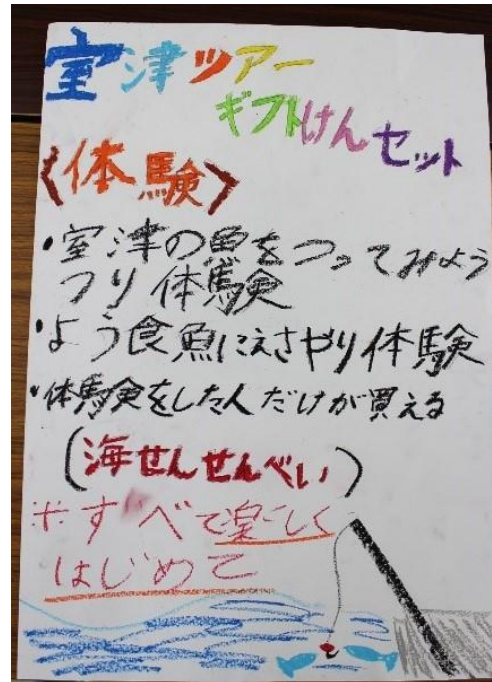 室津ツアー
ギフトけんセット
〈体験〉
・室津の魚をつってみよう
つり体験
・よう食魚にえさやり体験
・体験をした人だけが買える
(海せんせんべい)
すべて楽しく
はじめて